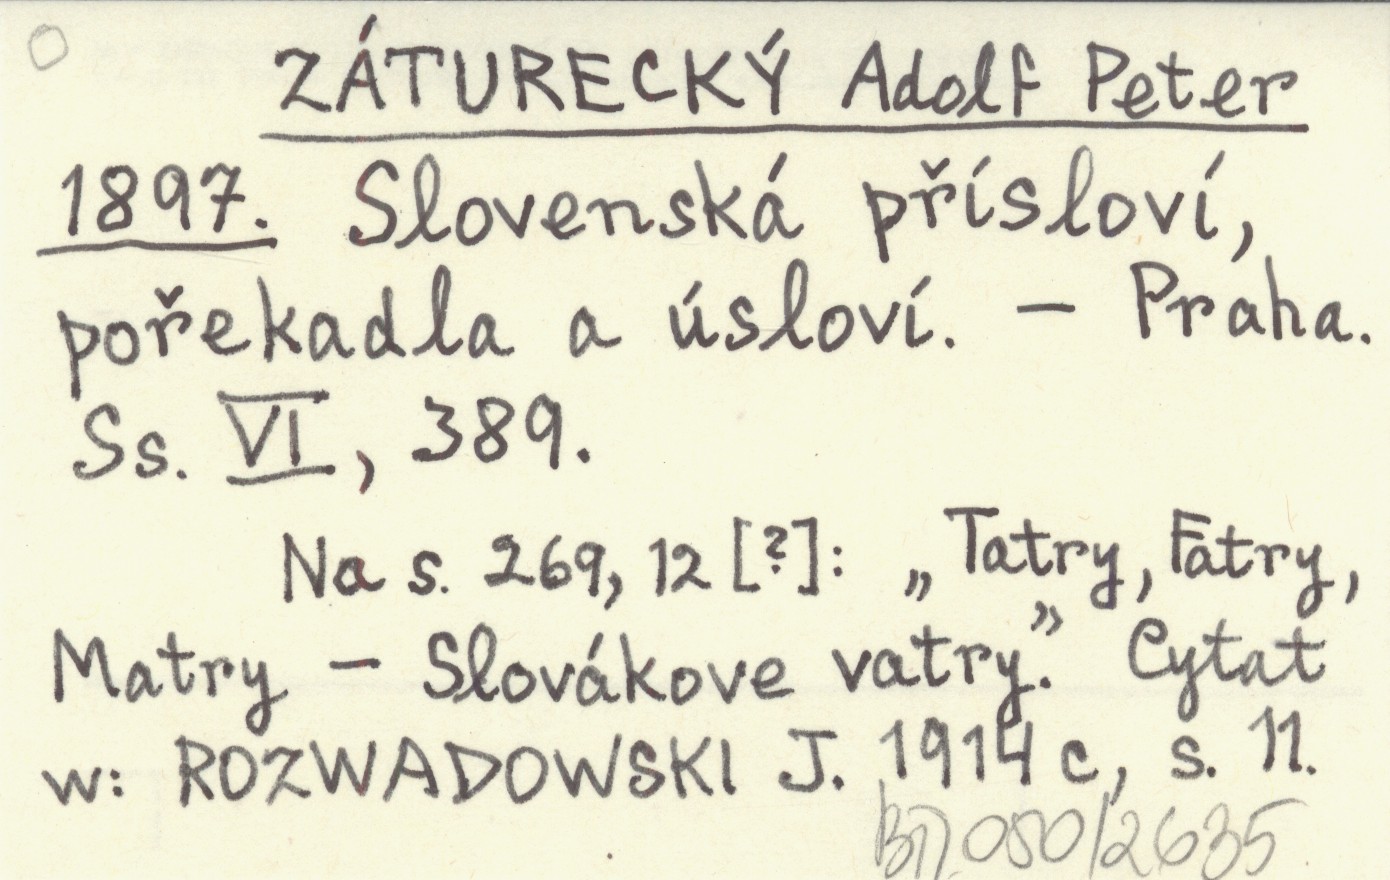 ZÁTURECKÝ Adolf Peter
1897. Slovenská přísloví,
pořekadla a úsloví. – Praha.
Ss. VI, 389.
Na s. 269, 12 [?]: „Tatry, Fatry,
Matry – Slovákove vatry.” Cytat
w: ROZWADOWSKI J. 1914 c, s. 11.
050/2635